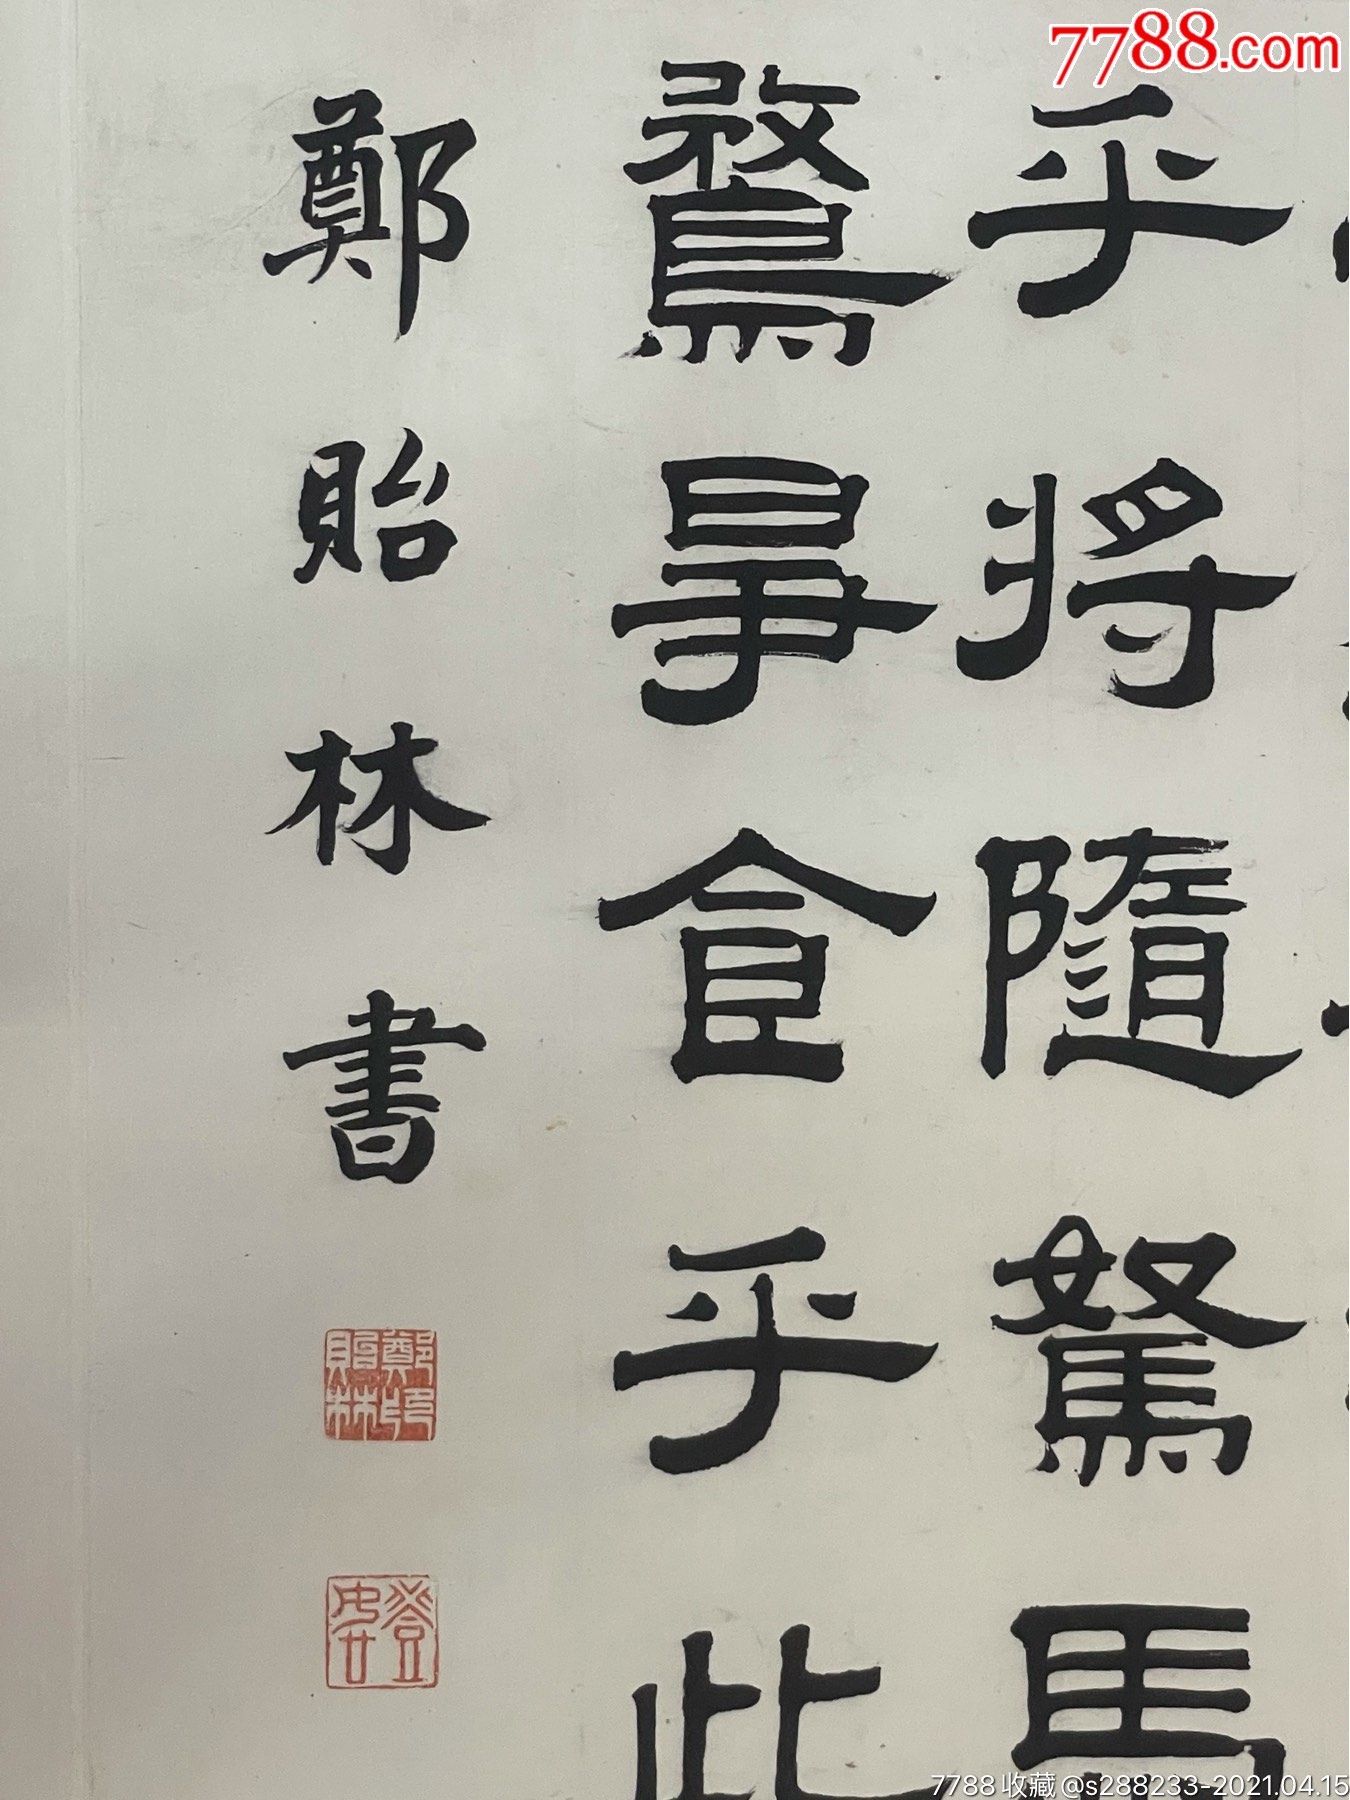 7788.com
乎將隨駑馬
鶩爭食乎此
鄭貽林書
鄭貽林印
7788收藏@s288233-2021.04.15